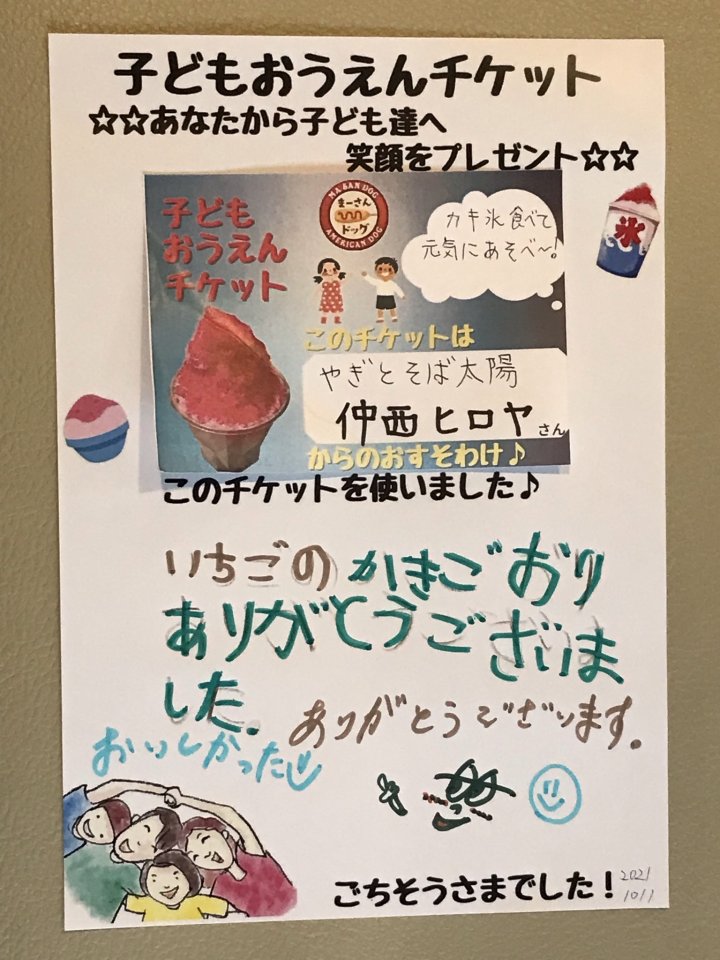 子どもおうえんチケット
☆☆あなたから子ども達へ
笑顔をプレゼント☆☆
子ども
おうえん
チケット
MA-SAN DOG
まーさん
ドッグ
AMERICAN DOG
カキ氷食べて
元気にあそべ〜!
氷
このチケットは
やぎとそば太陽
仲西ヒロヤさん
からのおすそわけ♪
このチケットを使いました♪
いちごのかきごおり
ありがとうございま
した。
ありがとうございます。
おいしかった
ごちそうさまでした!
2021
10/1